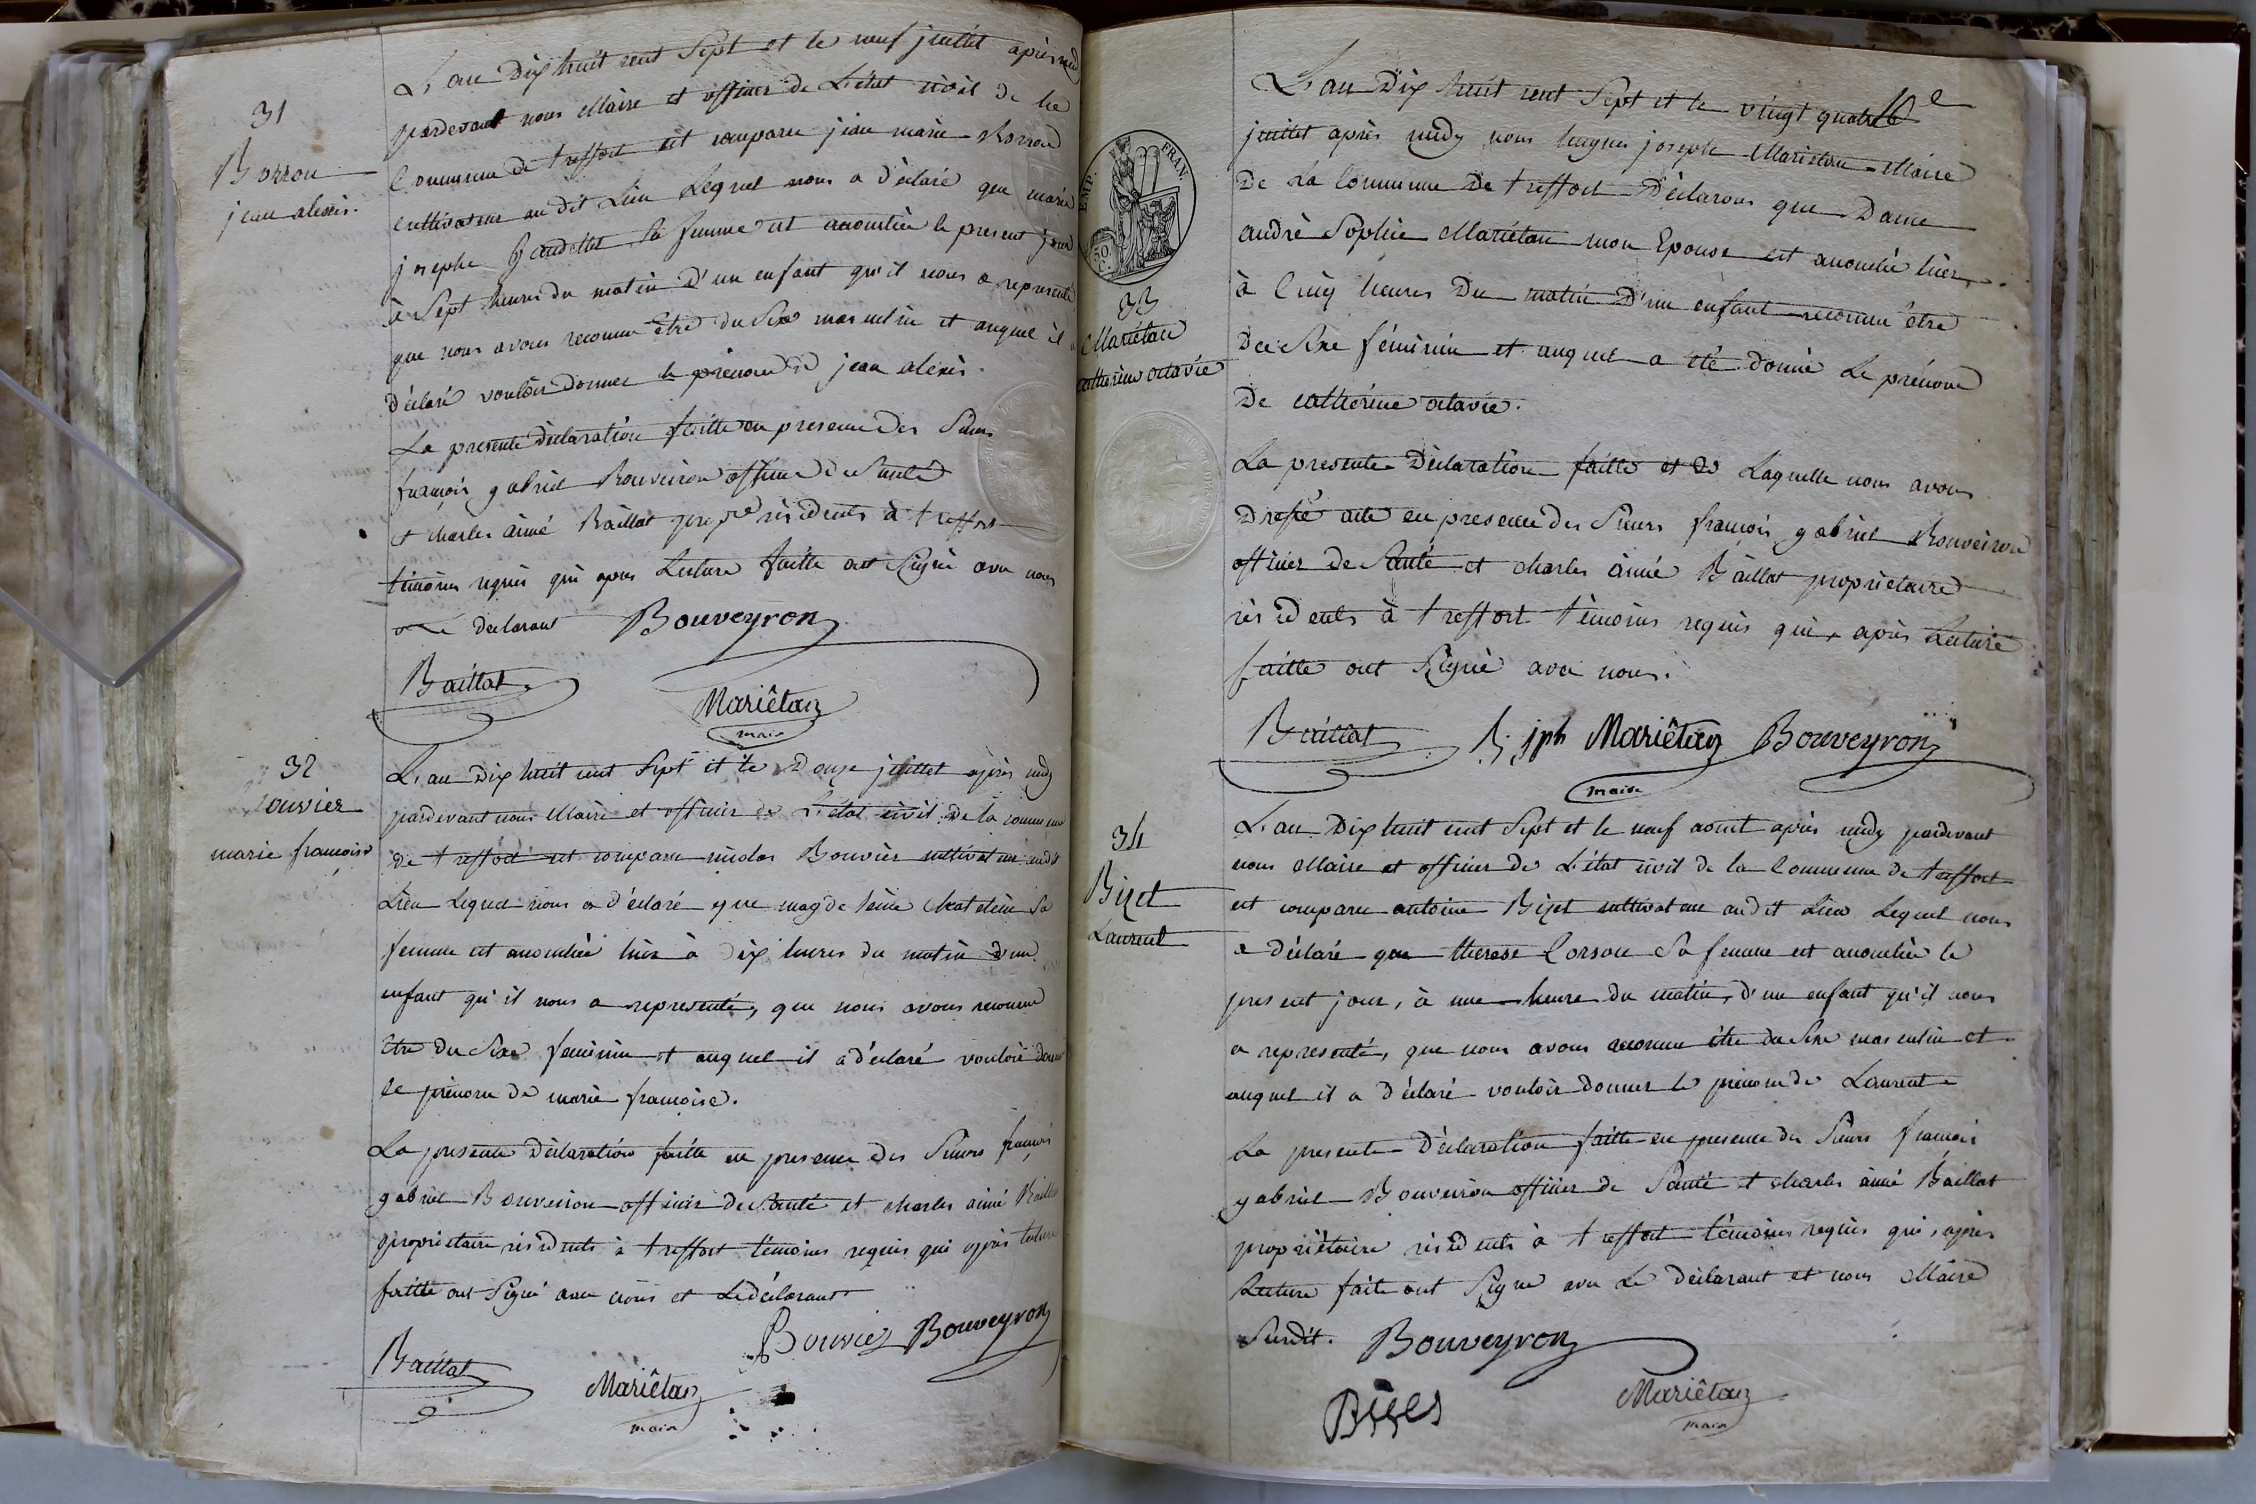 31
Borron
jean alexis.
L'an Dix huit cent Sept et le neuf juillet après midy
pardevant nous Maire et officier de L'état civil de la
Commune de treffort est comparu jean marie Borron
cultivateur au dit Lieu Lequel nous a déclaré que marie
josephe sa femme est accouchée le present jour
à Sept heures du matin D'un enfant qu'il nous a representé
que nous avons reconnu être du Sexe masculin et auquel il a
déclaré vouloir donner le prénom de jean alexis.
La presente déclaration faitte en presence des Sieurs
françois gabriel Bouveiron officier de Santé
et charles aimé Baillat propre résidents à treffort
témoins requis qui apres Lecture faitte ont Signé avec nous
declarant Bouveyron
Baillat
Mariêtan
maire
32
Bouvier
marie françoise
L'an Dix huit cent Sept et le Douze juillet après midy
pardevant nous Maire et officier de L'état civil de la commune
de treffort est comparu nicolas Bouvier cultivateur audit
Lieu Lequel nous a déclaré que magdeleine chatelein Sa
femme est accouchée hier à dix heures du matin d'un
enfant qu'il nous a representé, que nous avons reconnu
être du Sexe feminin et auquel il a déclaré vouloir donner
le prénom de marie françoise.
La presente Déclaration faitte en presence des Sieurs françois
gabriel Bouveiron officier de Santé et charles aimé Baillat
proprietaire résidents à treffort témoins requis qui après lecture
faitte ont Signé avec nous et Le déclarant
Bouvier Bouveyron
Baillat
Mariêtan
maire
EMP. FRAN.
33
Mariétan
catherine octavie
L'an Dix huit cent Sept et le vingt quatre
juillet après midy nous hugues joseph Mariétan Maire
De La Commune De treffort Déclarons que Dame
andré Sophie Mariétan mon Epouse est accouchée hier,
à Cinq heures Du matin D'un enfant reconnu être
Du Sexe féminin et auquel a été donné Le prénom
De catherine octavie.
La presente Déclaration faitte et de Laquelle nous avons
Dressé acte en presence des Sieurs françois gabriel Bouveiron
officier de Santé et charles aimé Baillat proprietaire
résidents à treffort témoins requis qui, après Lecture
faitte ont Signé avec nous.
Baillat h. jph Mariêtan Bouveyron
maire
34
Bizet
Laurent
L'an Dix huit cent Sept et le neuf aout après midy pardevant
nous Maire et officier de L'état civil de la Commune de treffort
est comparu antoine Bizet cultivateur audit Lieu Lequel nous
a déclaré que therese Corson Sa femme est accouchée le
present jour, à une heure du matin, d'un enfant qu'il nous
a representé, que nous avons reconnu être du Sexe masculin et
auquel il a déclaré vouloir donner le prénom de Laurent
La presente Déclaration faitte en presence des Sieurs françois
gabriel Bouveiron officier de Santé et charles aimé Baillat
propriétaire résidents à treffort témoins requis qui, après
Lecture faite ont Signé avec Le déclarant et nous Maire
Susdit. Bouveyron
Mariêtan
maire